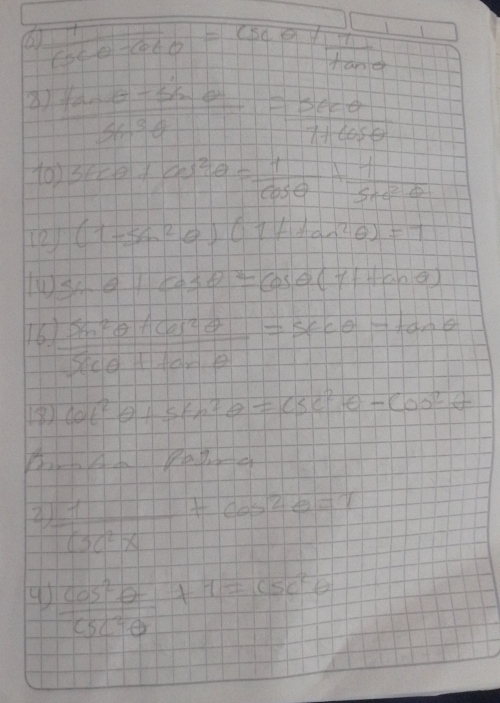 6) 1/(csc θ - cot θ) = csc θ + 1/tan θ
8) (tan θ - sin θ)/sin³ θ = sec θ/(1 + cos θ)
10) sec θ + cos² θ = 1/cos θ + 1/sec² θ
12) (1 - sen² θ)(1 + tan² θ) = 1
14) sen θ + cos θ = cos θ (1 + tan θ)
16) (sen² θ + cos² θ)/(sec θ + tan θ) = sec θ - tan θ
18) cot² θ + sen² θ = csc² θ - cos² θ
2) 1/csc² x + cos² θ = 1
4) cos² θ/csc² θ + 1 = csc² θ